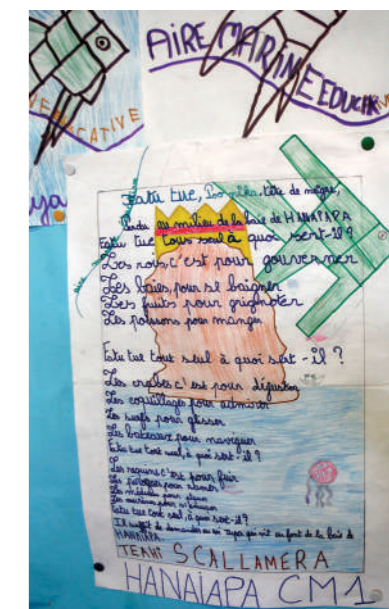 AIRE MARINE EDUCA
EDUCATIVE
ya
Fatu tue, tête de nègre,
Perdu au milieu de la baie de HANAIAPA
Fatu tue tous seul à quoi sert-il?
Les rois, c'est pour gouverner
Les baies, pour se baigner
Les fruits pour grignoter
Les poissons pour manger
Fatu tue tout seul à quoi sert-il?
Les crabes c'est pour déguster
Les coquillages pour admirer
Les surfs pour glisser
Les bateaux pour naviguer
Fatu tue tout seul, à quoi sert-il?
Les requins c'est pour fuir
Les pirogues pour ramer
Les méduses pour
Les pour
Fatu tue tout seul, à quoi sert-il?
Il suffit de demander au roi qui vit au fond de la baie de
HANAIAPA.
TEAHI SCALLAMERA
HANAIAPA CM1